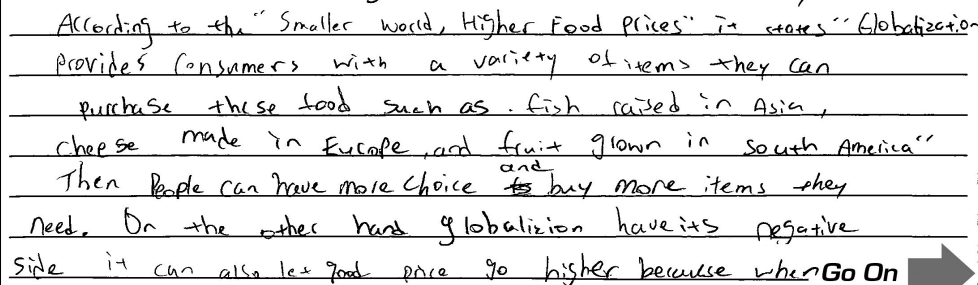 According to the "Smaller world, Higher Food prices" it states "Globalization
provides consumers with a variety of items they can
purchase these food such as . fish raised in Asia,
cheese made in Europe, and fruit grown in south America"
Then People can have more choice and buy more items they
need. On the other hand globalizion have its negative
side it can also let good price go higher becuse when Go On